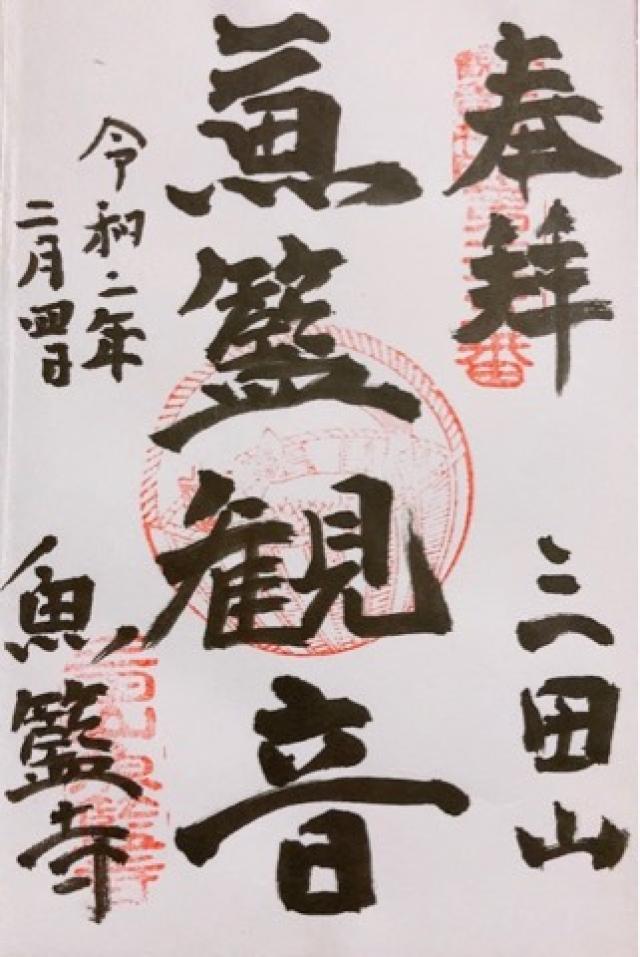 奉拝
三田山
魚籃観音
令和二年
二月四日
魚籃寺